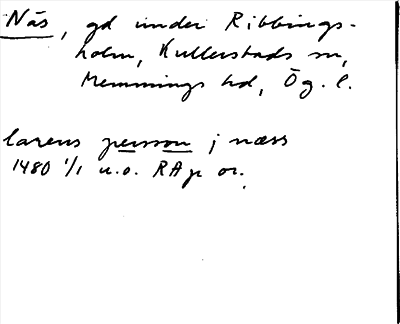 Näs, gd under Ribbings-
holm, Kullerstads sn,
Memmings hd, Ög. l.
larens person j næss
1480 1/1 u.o. RAp or.